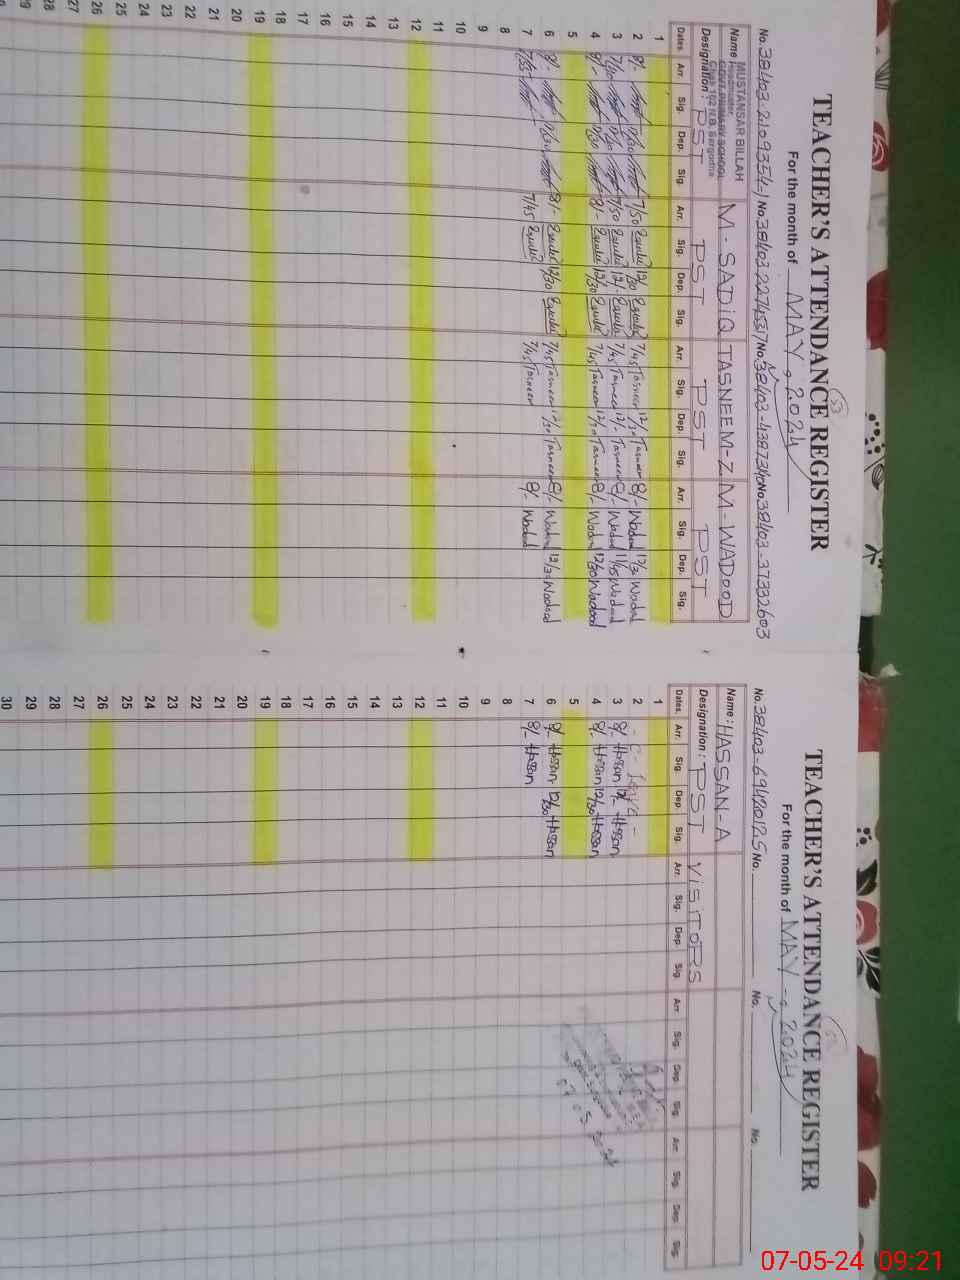 TEACHER'S ATTENDANCE REGISTER
53
For the month of MAY, 2024
No. 38403-2109354-1 No. 38403 2274537 No. 38403-438734 No. 38403-37332603
Name MUSTANSAR BILLAH M-SADIQ TASNEEM-Z M-WADOOD
Headmaster
GOVT. PRIMARY SCHOOL
Chak 102 N.B. Sargodha
Designation: PST PST PST PST
Dates. Arr. Sig. Dep. Sig. Arr. Sig. Dep. Sig. Arr. Sig. Dep. Sig. Arr. Sig. Dep. Sig.
1
2 8/- 12/30 7/50 12/30 7/45 Tasneem 12/30 Tasneem 8/- Wadood 12/30 Wadood
3 7/50 7/50 12/- 7/45 Tasneem 12/- Tasneem 8/- Wadood 11/45 Wadood
4 8/- 12/30 8/- 12/30 7/45 Tasneem 12/30 Tasneem 8/- Wadood 12/30 Wadood
5
6 8/- 12/30 8/- 12/30 7/45 Tasneem 12/30 Tasneem 8/- Wadood 12/30 Wadood
7 7/55 7/45 7/45 Tasneem 8/- Wadood
8
9
10
11
12
13
14
15
16
17
18
19
20
21
22
23
24
25
26
27
28
29
TEACHER'S ATTENDANCE REGISTER
For the month of MAY - 2024
No. 38403-69420125 No. No. No.
Name: HASSAN-A
Designation: PST VISITORS
Dates. Arr. Sig. Dep. Sig. Arr. Sig. Dep. Sig. Arr. Sig. Dep. Sig. Arr. Sig. Dep. Sig.
1
2 - C - Leave -
3 8/- Hassan 12/- Hassan
4 8/- Hassan 12/30 Hassan
5
6 8/- Hassan 12/30 Hassan
7 8/- Hassan
8
9
10
11
12
13
14
15
16
17
18
19
20
21
22
23
24
25
26
27
28
29
30
07-05-24 09:21